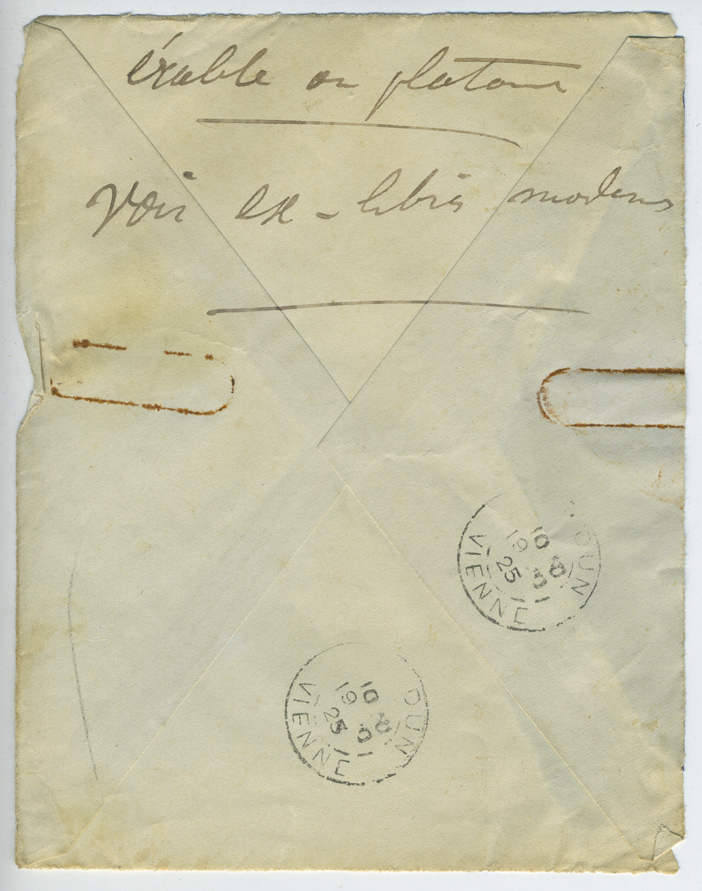 érable ou platane
Voir ex-libris moderns
DUN
10
19 38
25
VIENNE
DUN
10
19 38
25
VIENNE